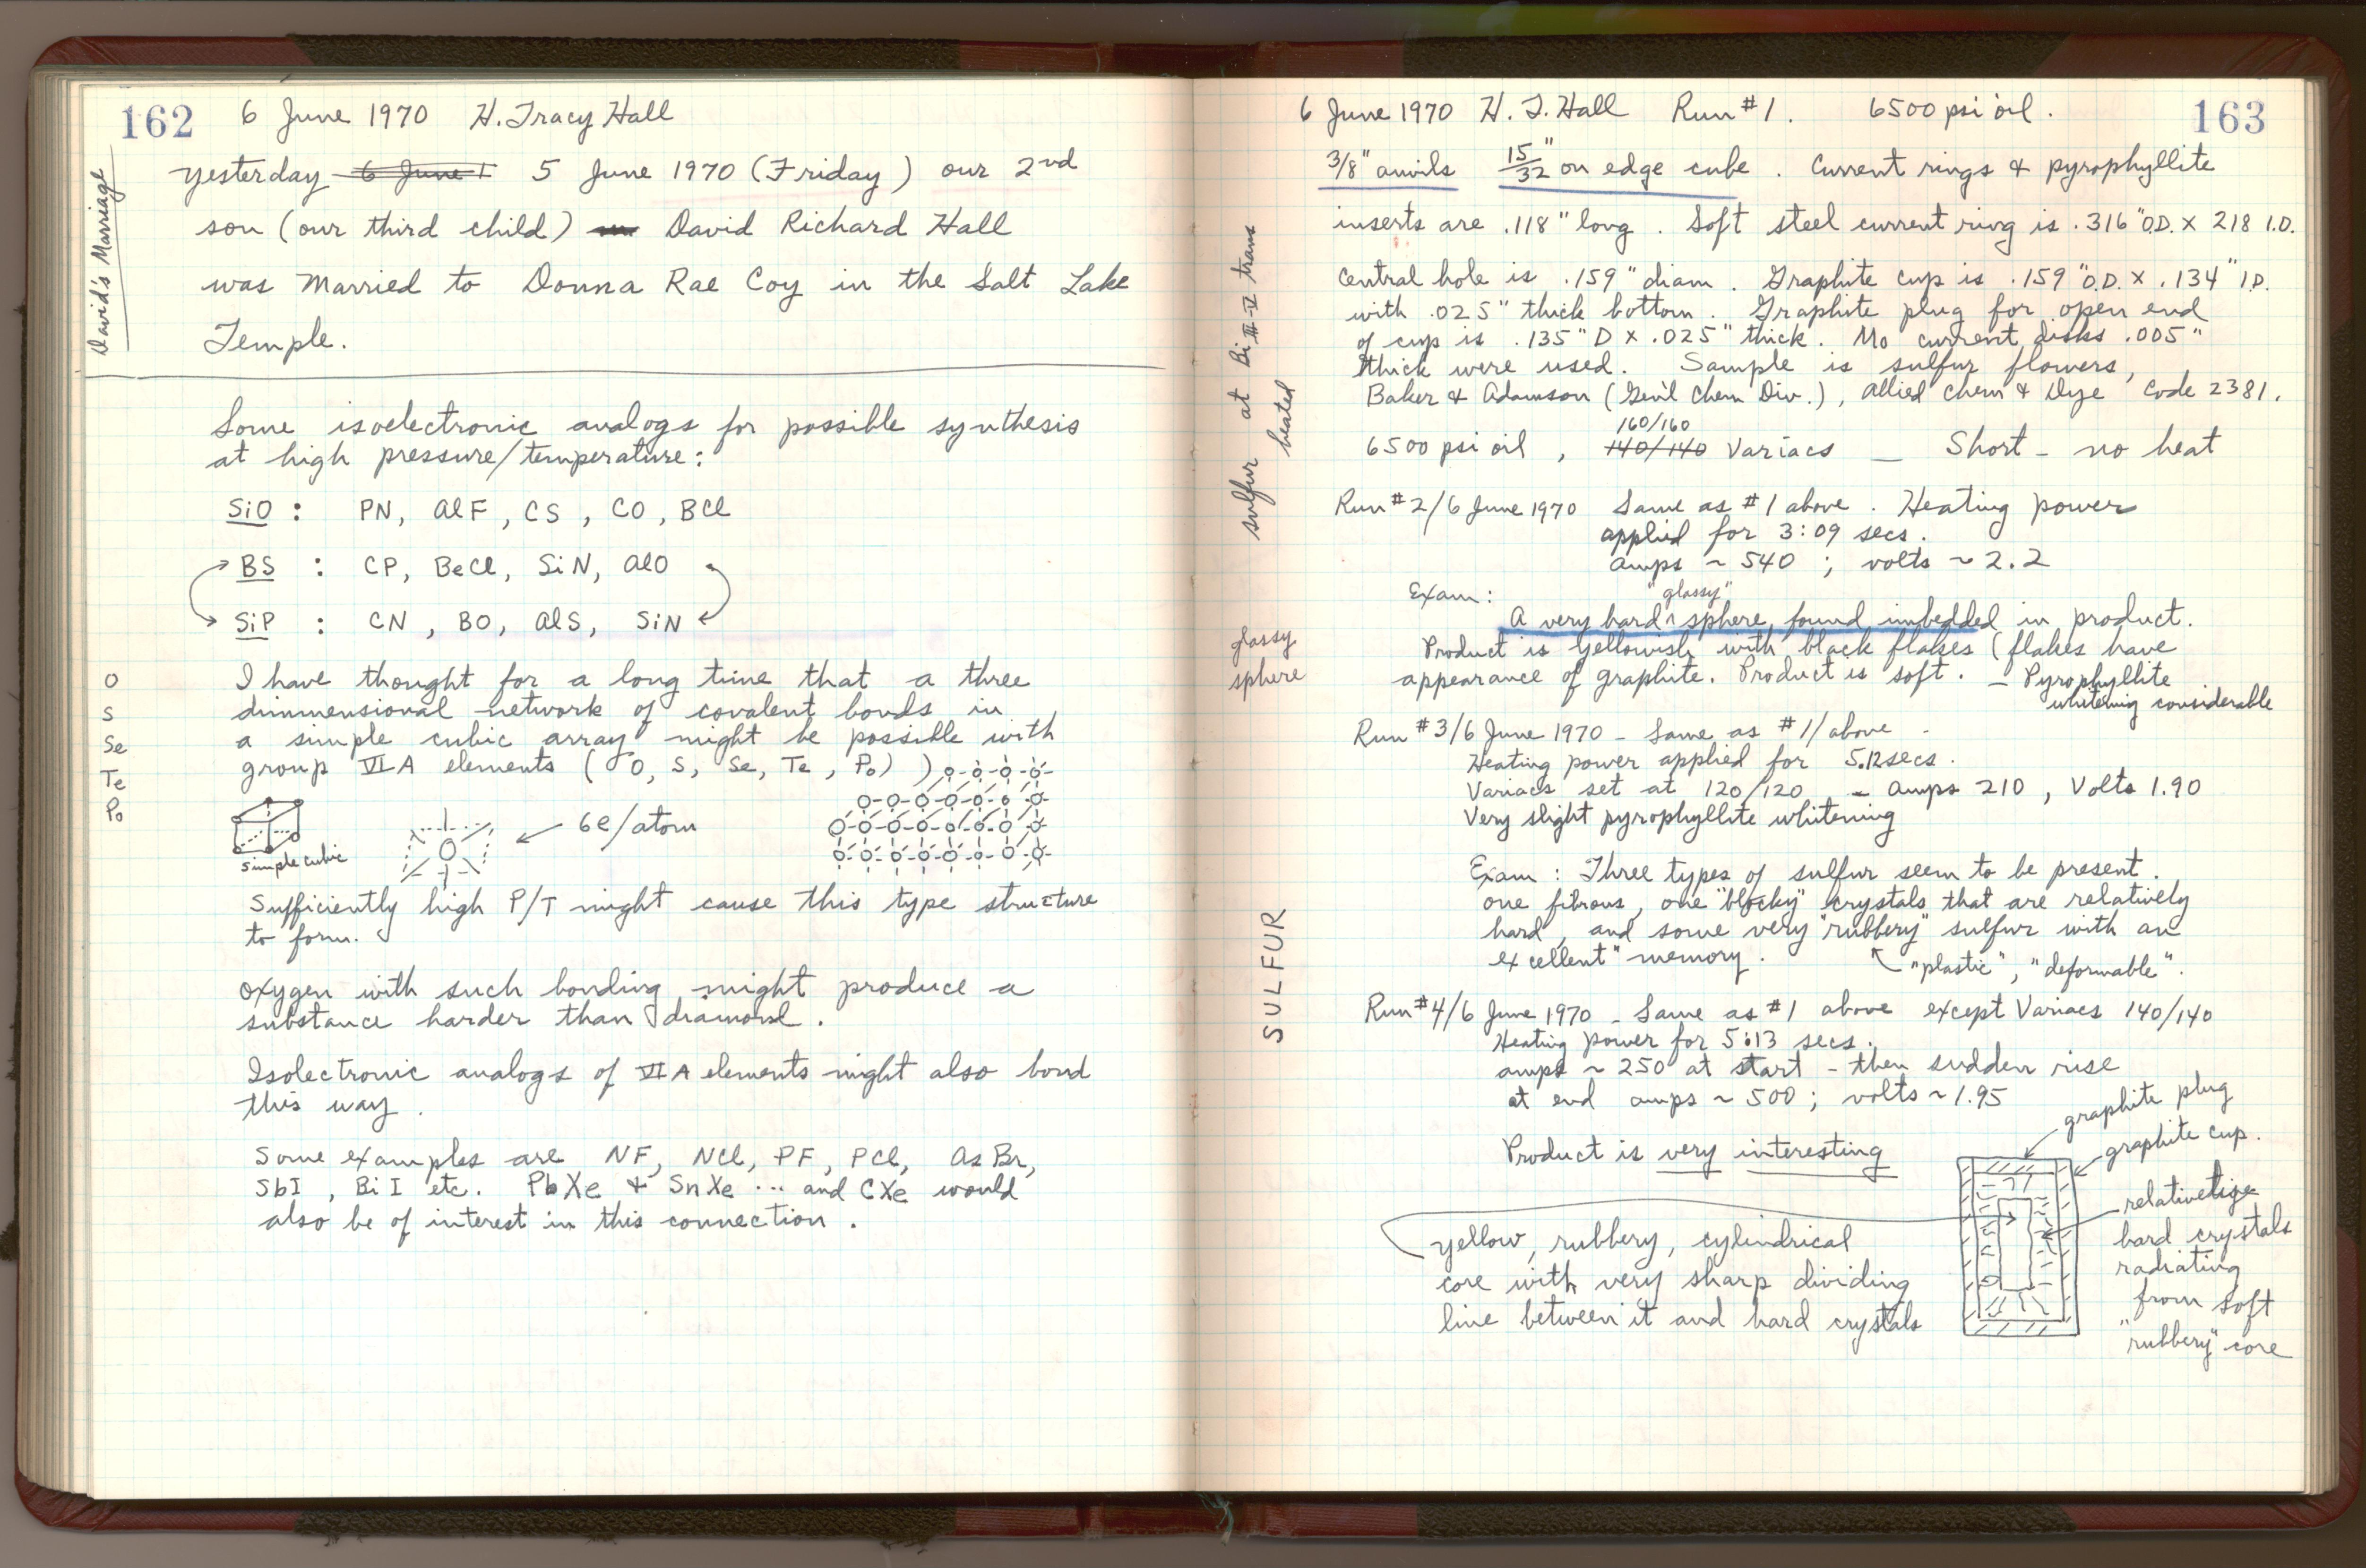 162 6 June 1970 H. Tracy Hall
David's Marriage
Yesterday 6 June 1 5 June 1970 (Friday) our 2nd
son (our third child) David Richard Hall
was Married to Donna Rae Coy in the Salt Lake
Temple.
Some isoelectronic analogs for possible synthesis
at high pressure/temperature:
SiO : PN, AlF, CS, CO, BCl
BS : CP, BeCl, SiN, AlO
SiP : CN, BO, AlS, SiN
O
S
Se
Te
Po
I have thought for a long time that a three
dimmensional network of covalent bonds in
a simple cubic array might be possible with
group VI A elements (O, S, Se, Te, Po)
simple cubic
6e/atom
Sufficiently high P/T might cause this type structure
to form.
Oxygen with such bonding might produce a
substance harder than diamond.
Isolectronic analogs of VI A elements might also bond
this way.
Some examples are NF, NCl, PF, PCl, AsBr,
SbI, BiI etc. PbXe & SnXe ... and CXe would
also be of interest in this connection.
6 June 1970 H. T. Hall Run #1. 6500 psi oil. 163
3/8" anvils 15/32" on edge cube. Current rings & pyrophyllite
inserts are .118" long. Soft steel current ring is .316" O.D. x 218 I.D.
Central hole is .159" diam. Graphite cup is .159" O.D. x .134" I.D.
with .025" thick bottom. Graphite plug for open end
of cup is .135" D x .025" thick. Mo current disks .005"
thick were used. Sample is sulfur flowers,
Baker & Adamson (Gen'l Chem Div.), Allied Chem & Dye Code 2381.
160/160
6500 psi oil, 140/140 Variacs — Short - no heat
sulfur at Bi III-V trans
heated
Run #2/6 June 1970 Same as #1 above. Heating power
applied for 3:09 secs.
Amps ~ 540 ; volts ~ 2.2
Exam: "glassy"
A very hard ^ sphere found imbedded in product.
Product is yellowish with black flakes (flakes have
appearance of graphite. Product is soft. - Pyrophyllite
whitening considerable
glassy
sphere
Run #3/6 June 1970 - Same as #1/above -
Heating power applied for 5.12 secs.
Variacs set at 120/120 - Amps 210, Volts 1.90
Very slight pyrophyllite whitening
Exam: Three types of sulfur seem to be present.
one fibrous, one "blocky" crystals that are relatively
hard, and some very "rubbery" sulfur with an
excellent "memory. "plastic", "deformable".
SULFUR
Run #4/6 June 1970 - Same as #1 above except Variacs 140/140
Heating power for 5:13 secs.
amps ~ 250 at start - then sudden rise
at end amps ~ 500 ; volts ~ 1.95
Product is very interesting
graphite plug
graphite cup.
yellow, rubbery, cylindrical
core with very sharp dividing
line between it and hard crystals
relatively
hard crystals
radiating
from soft
"rubbery" core